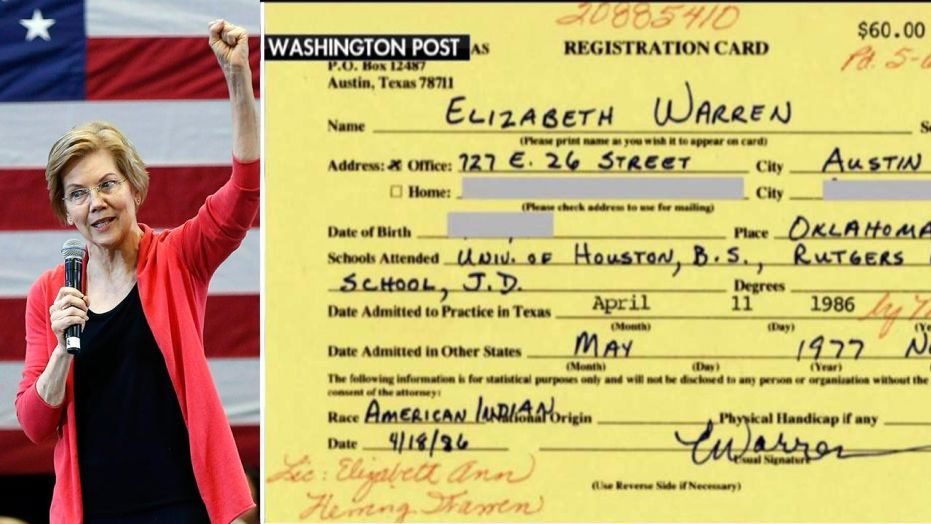 20885410
$60.00
WASHINGTON POST
AS REGISTRATION CARD
Pd. 5-
P.O. Box 12487
Austin, Texas 78711
Name ELIZABETH WARREN
(Please print name as you wish it to appear on card)
Address: Office: 727 E. 26 STREET City AUSTIN
Home: City
(Please check address to use for mailing)
Date of Birth Place OKLAHOMA
Schools Attended UNIV. OF HOUSTON, B.S., RUTGERS
SCHOOL, J.D. Degrees
Date Admitted to Practice in Texas April 11 1986
(Month) (Day) (Ye
Date Admitted in Other States MAY 1977
(Month) (Day) (Year)
The following information is for statistical purposes only and will not be disclosed to any person or organization without the
consent of the attorney:
Race AMERICAN INDIAN National Origin Physical Handicap if any
Date 4/18/86 EWarren
Usual Signature
Lic: Elizabeth Ann
Herring Warren
(Use Reverse Side if Necessary)